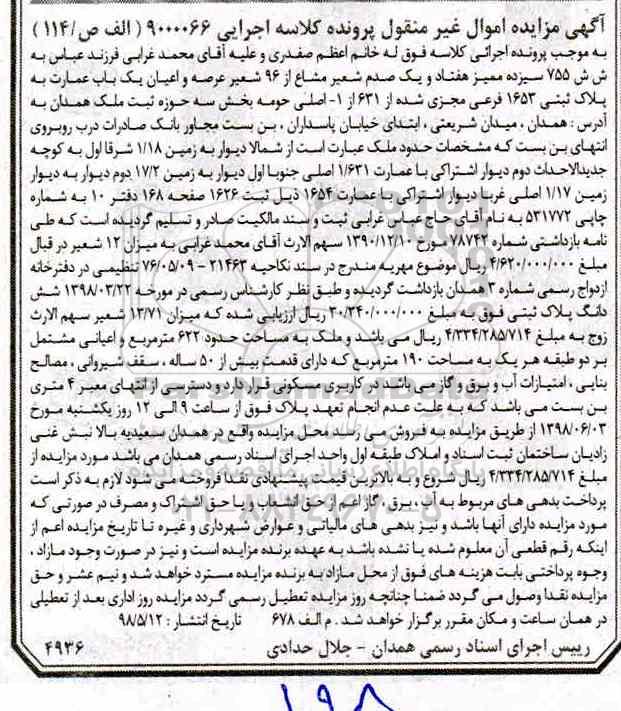 آگهی مزایده اموال غیر منقول پرونده کلاسه اجرایی ۹۰۰۰۰۶۶ ( الف ص/۱۱۴ )
به موجب پرونده اجرائی کلاسه فوق له خانم اعظم صفدری و علیه آقای محمد غرابی فرزند عباس به
ش ش ۷۵۵ سیزده ممیز هفتاد و یک صدم شعیر مشاع از ۹۶ شعیر عرصه و اعیان یک باب عمارت به
پلاک ثبتی ۱۶۵۳ فرعی مجزی شده از ۶۳۱ از ۱- اصلی حومه بخش سه حوزه ثبت ملک همدان به
آدرس : همدان ، میدان شریعتی ، ابتدای خیابان پاسداران ، بن بست مجاور بانک صادرات درب روبروی
انتهای بن بست که مشخصات حدود ملک عبارت است از شمالا دیوار به زمین ۱/۱۸ شرقا اول به کوچه
جدیدالاحداث دوم دیوار اشتراکی با عمارت ۱/۶۳۱ اصلی جنوبا اول دیوار به زمین ۱۷/۲ دوم دیوار به دیوار
زمین ۱/۱۷ اصلی غربا دیوار اشتراکی با عمارت ۱۶۵۴ ذیل ثبت ۱۶۲۶ صفحه ۱۶۸ دفتر ۱۰ به شماره
چاپی ۵۳۱۷۷۲ به نام آقای حاج عباس غرابی ثبت و سند مالکیت صادر و تسلیم گردیده است که طی
نامه بازداشتی شماره ۷۸۷۴۲ مورخ ۱۳۹۰/۱۲/۱۰ سهم الارث آقای محمد غرابی به میزان ۱۲ شعیر در قبال
مبلغ ۴/۶۲۰/۰۰۰/۰۰۰ ریال موضوع مهریه مندرج در سند نکاحیه ۲۱۴۶۳ – ۷۶/۰۵/۰۹ تنظیمی در دفترخانه
ازدواج رسمی شماره ۳ همدان بازداشت گردیده و طبق نظر کارشناس رسمی در مورخه ۱۳۹۸/۰۳/۲۲ شش
دانگ پلاک ثبتی فوق به مبلغ ۳۰/۳۴۰/۰۰۰/۰۰۰ ریال ارزیابی شده که میزان ۱۳/۷۱ شعیر سهم الارث
زوج به مبلغ ۴/۳۳۴/۲۸۵/۷۱۴ ریال می باشد و ملک به مساحت حدود ۶۲۲ مترمربع و اعیانی مشتمل
بر دو طبقه هر یک به مساحت ۱۹۰ مترمربع که دارای قدمت بیش از ۵۰ ساله ، سقف شیروانی ، مصالح
بنایی ، امتیازات آب و برق و گاز می باشد در کاربری مسکونی قرار دارد و دسترسی از انتهای معبر ۴ متری
بن بست می باشد که به علت عدم انجام تعهد پلاک فوق از ساعت ۹ الی ۱۲ روز یکشنبه مورخ
۱۳۹۸/۰۶/۰۳ از طریق مزایده به فروش می رسد محل مزایده واقع در همدان سعیدیه بالا نبش غنی
زادیان ساختمان ثبت اسناد و املاک طبقه اول واحد اجرای اسناد رسمی همدان می باشد مورد مزایده از
مبلغ ۴/۳۳۴/۲۸۵/۷۱۴ ریال شروع و به بالاترین قیمت پیشنهادی نقدا فروخته می شود لازم به ذکر است
پرداخت بدهی های مربوط به آب ، برق ، گاز اعم از حق انشعاب و یا حق اشتراک و مصرف در صورتی که
مورد مزایده دارای آنها باشد و نیز بدهی های مالیاتی و عوارض شهرداری و غیره تا تاریخ مزایده اعم از
اینکه رقم قطعی آن معلوم شده یا نشده باشد به عهده برنده مزایده است و نیز در صورت وجود مازاد ،
وجوه پرداختی بابت هزینه های فوق از محل مازاد به برنده مزایده مسترد خواهد شد و نیم عشر و حق
مزایده نقدا وصول می گردد ضمنا چنانچه روز مزایده تعطیل رسمی گردد مزایده روز اداری بعد از تعطیلی
در همان ساعت و مکان مقرر برگزار خواهد شد . م الف ۶۷۸ تاریخ انتشار : ۹۸/۵/۱۲
رییس اجرای اسناد رسمی همدان – جلال حدادی ۴۹۳۶
۱۹۸